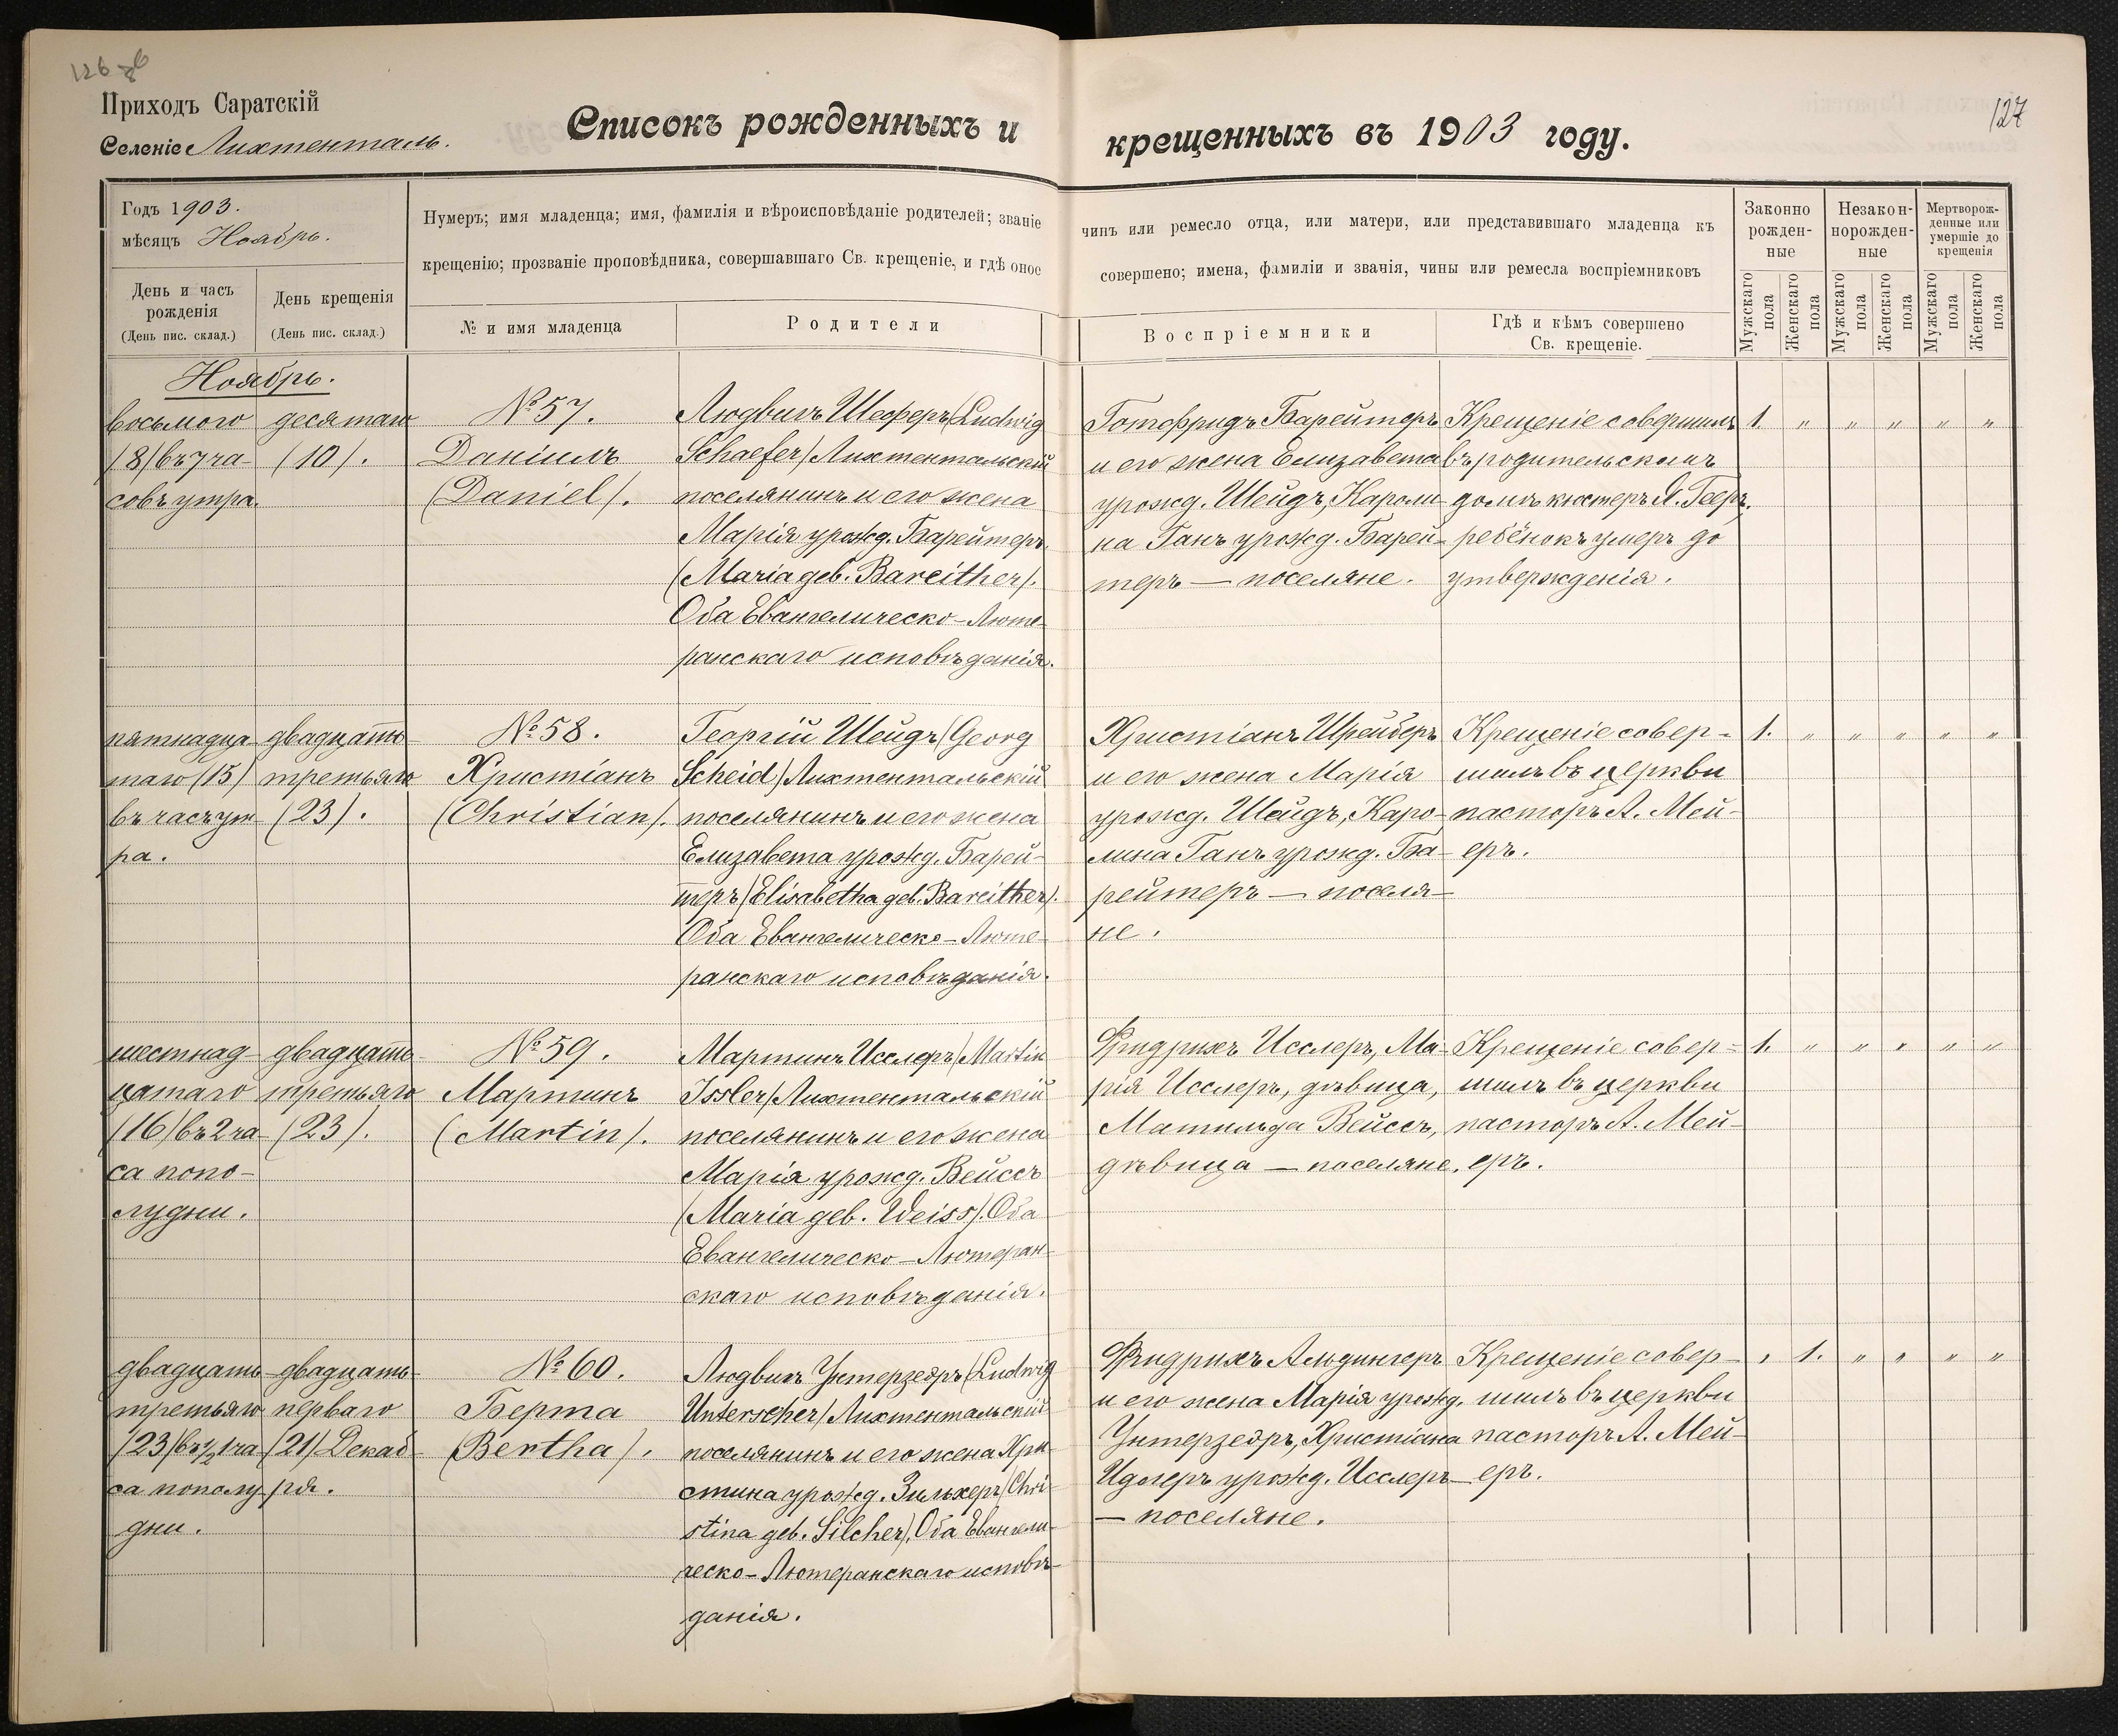 126
127
Приходъ Саратскій
Селеніе Лихтенталь.
Списокъ рожденныхъ и крещенныхъ въ 1903 году.
Годъ 1903.
мѣсяцъ Ноябрь.
Нумеръ; имя младенца; имя, фамилія и вѣроисповѣданіе родителей; званіе
чинъ или ремесло отца, или матери, или представившаго младенца къ
крещенію; прозваніе проповѣдника, совершавшаго Св. крещеніе, и гдѣ оное
совершено; имена, фамиліи и званія, чины или ремесла воспріемниковъ
День и часъ
рожденія
(День пис. склад.)
День крещенія
(День пис. склад.)
№ и имя младенца
Родители
Воспріемники
Гдѣ и кѣмъ совершено
Св. крещеніе.
Законно
рожден-
ные
Незакон-
норожден-
ные
Мертворож-
денные или
умершіе до
крещенія
Мужскаго
пола
Женскаго
пола
Мужскаго
пола
Женскаго
пола
Мужскаго
пола
Женскаго
пола
Ноябрь.
восьмого
(8) въ 7 ча-
совъ утра.
десятаго
(10).
№ 57.
Даніилъ
(Daniel).
Людвигъ Шеферъ (Ludwig
Schaefer) Лихтентальскій
поселянинъ и его жена
Марія урожд. Барейтеръ
(Maria geb. Bareither).
Оба Евангелическо-Люте-
ранскаго исповѣданія.
Готфридъ Барейтеръ
и его жена Елизавета
урожд. Шейдъ, Кароли-
на Ганъ урожд. Барей-
теръ — поселяне.
Крещеніе совершилъ
въ родительскомъ
домѣ кистеръ Я. Гееръ,
ребёнокъ умеръ до
утвержденія.
1. " " " " "
пятнадца-
таго (15)
въ часъ ут-
ра.
двадцать
третьяго
(23).
№ 58.
Христіанъ
(Christian).
Георгій Шейдъ (Georg
Scheid) Лихтентальскій
поселянинъ и его жена
Елизавета урожд. Барей-
теръ (Elisabetha geb. Bareither).
Оба Евангелическо-Люте-
ранскаго исповѣданія.
Христіанъ Шрейберъ
и его жена Марія
урожд. Шейдъ, Каро-
лина Ганъ урожд. Ба-
рейтеръ — поселя-
не.
Крещеніе совер-
шилъ въ церкви
пасторъ А. Мей-
еръ.
1. " " " " "
шестнад-
цатаго
(16) въ 2 ча-
са попо-
лудни.
двадцать
третьяго
(23).
№ 59.
Мартинъ
(Martin).
Мартинъ Исслеръ (Martin
Issler) Лихтентальскій
поселянинъ и его жена
Марія урожд. Вейссъ
(Maria geb. Weiss). Оба
Евангелическо-Лютеран-
скаго исповѣданія.
Фридрихъ Исслеръ, Ма-
рія Исслеръ, дѣвица,
Матильда Вейссъ,
дѣвица — поселяне.
Крещеніе совер-
шилъ въ церкви
пасторъ А. Мей-
еръ.
1. " " " " "
двадцать
третьяго
(23) въ ½ 1 ча-
са пополу-
дни.
двадцать
перваго
(21) Декаб-
ря.
№ 60.
Берта
(Bertha).
Людвигъ Унтерзееръ (Ludwig
Unterseher) Лихтентальскій
поселянинъ и его жена Хри-
стина урожд. Зильхеръ (Chri-
stina geb. Silcher). Оба Евангели-
ческо-Лютеранскаго исповѣ-
данія.
Фридрихъ Альдингеръ
и его жена Марія урожд.
Унтерзееръ, Христіана
Идлеръ урожд. Исслеръ
— поселяне.
Крещеніе совер-
шилъ въ церкви
пасторъ А. Мей-
еръ.
" 1. " " " "